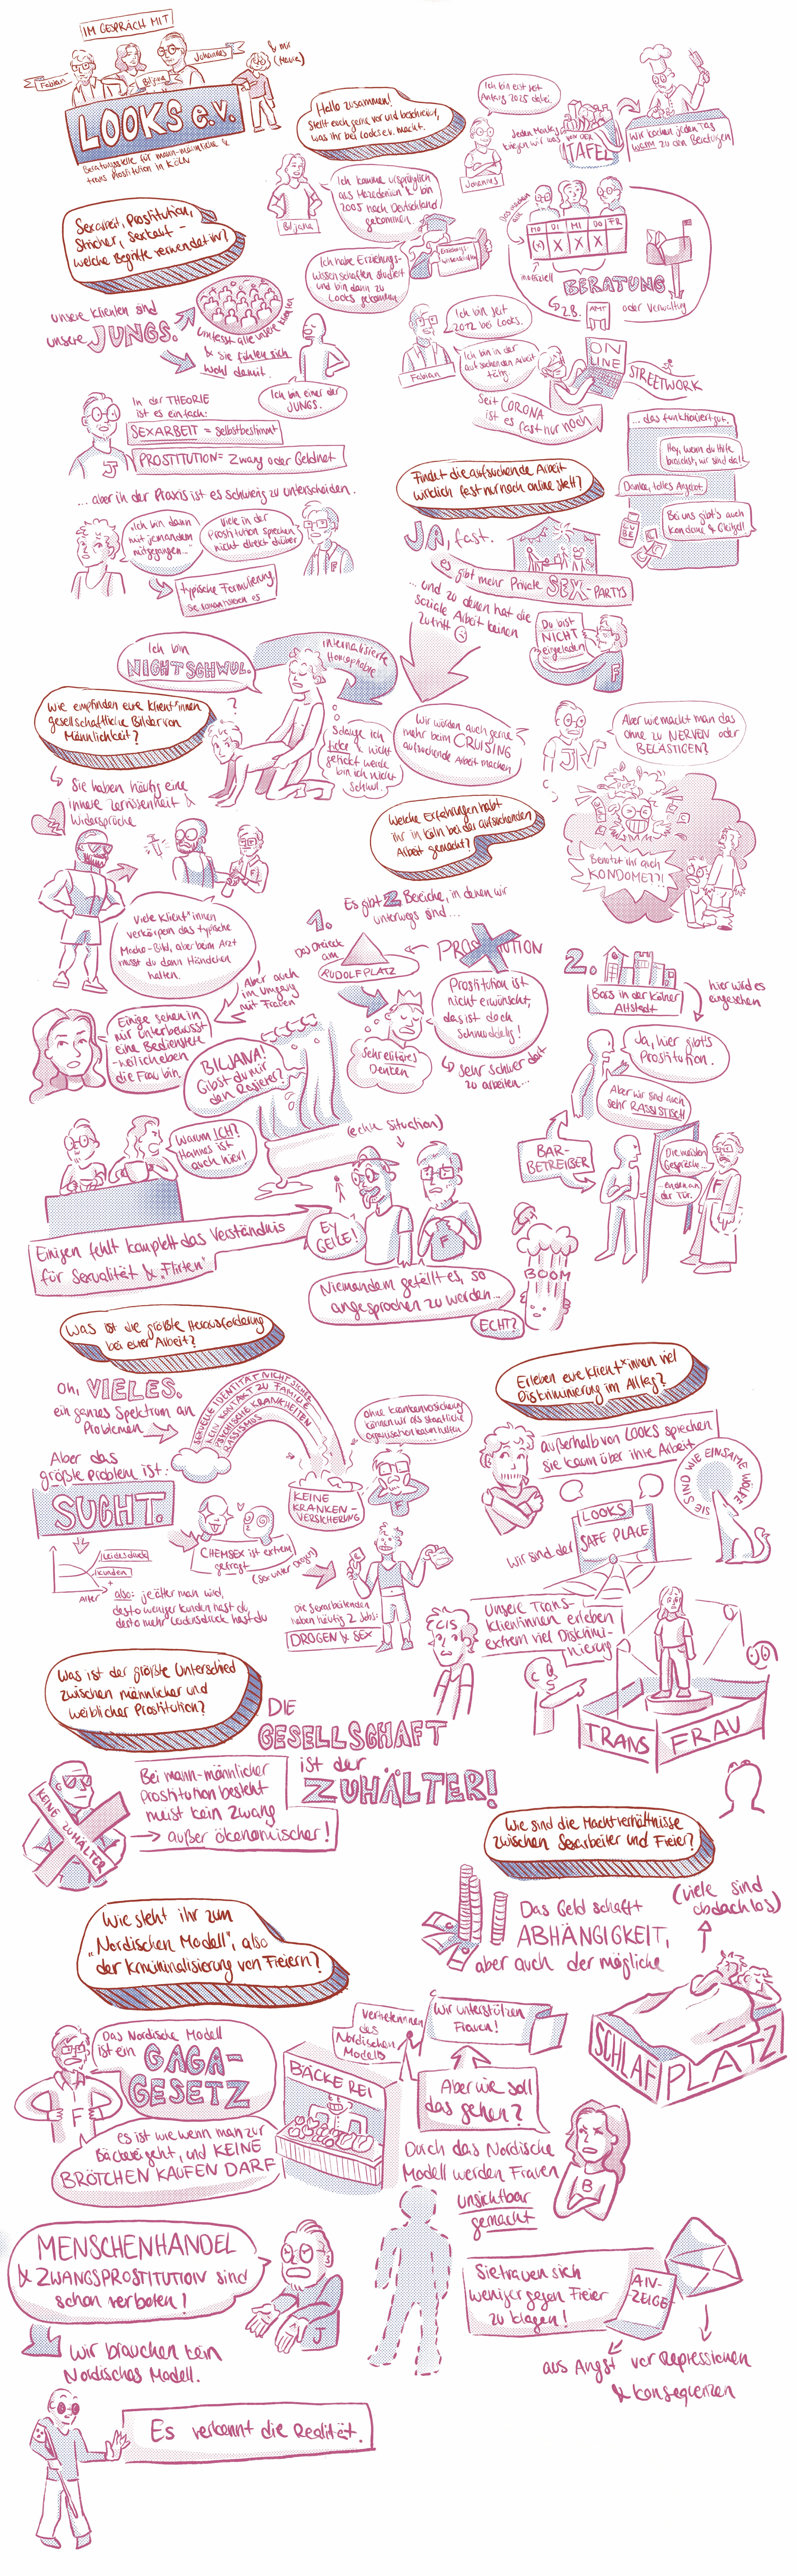 IM GESPRÄCH MIT
Fabian
Biljana
Johannes
& mir
LOOKS e.V.
Beratungsstelle für mann-männliche &
trans Prostitution in Köln
Hallo zusammen!
Stellt euch gerne vor und beschreibt,
was ihr bei Looks e.V. macht.
Ich bin erst seit
Anfang 2025 dabei.
Johannes
Jeden Montag
kriegen wir was von der
TAFEL
Wir kochen jeden Tag
warm zu den Beratungen
Ich komme ursprünglich
aus Mazedonien & bin
2005 nach Deutschland
gekommen.
Biljana
Ich habe Erziehungs-
wissenschaften studiert
und bin dann zu
Looks gekommen
Erziehungs-
wissenschaften
Das machen
alle
MO DI MI DO FR
(x) X X X
inoffiziell
BERATUNG
z.B. AMT oder Verwaltung
Ich bin seit
2012 bei Looks.
Fabian
Ich bin in der
aufsuchenden Arbeit
tätig.
ON
LINE
STREETWORK
Seit CORONA
ist es fast nur noch
... das funktioniert gut.
Hey, wenn du Hilfe
brauchst, wir sind da!
Danke, tolles Angebot.
Bei uns gibt's auch
Kondome & Gleitgel!
LUBE
Sexarbeit, Prostitution,
Stricher, Sexkauf -
welche Begriffe verwendet ihr?
unsere Klienten sind
unsere JUNGS.
umfasst alle unsere Klienten
& sie fühlen sich
wohl damit.
Ich bin einer der
JUNGS.
In der THEORIE
ist es einfach:
SEXARBEIT = selbstbestimmt
PROSTITUTION = Zwang oder Geldnot
J
... aber in der Praxis ist es schwierig zu unterscheiden.
„Ich bin dann
mit jemandem
mitgegangen..."
Viele in der
Prostitution sprechen
nicht direkt drüber
typische Formulierung
Findet die aufsuchende Arbeit
wirklich fast nur noch online statt?
JA, fast.
es gibt mehr Private SEX-PARTYS
... und zu denen hat die
soziale Arbeit keinen
Zutritt
Du bist
NICHT
eingeladen
F
Wir würden auch gerne
mehr beim CRUISING
aufsuchende Arbeit machen
J
Aber wie macht man das
ohne zu NERVEN oder
BELÄSTIGEN?
Benutzt ihr auch
KONDOME??!
Ich bin
NICHT SCHWUL.
internalisierte
Homophobie
Solange ich
ficke & nicht
gefickt werde
bin ich nicht
schwul.
?
Wie empfinden eure Klient*innen
gesellschaftliche Bilder von
Männlichkeit?
Sie haben häufig eine
innere Zerrissenheit &
Widersprüche
Viele Klient*innen
verkörpern das typische
Macho-Bild, aber beim Arzt
musst du dann Händchen
halten.
Aber auch
im Umgang
mit Frauen
Einige sehen in
mir unterbewusst
eine Bedienstete
- weil ich eben
die Frau bin.
BILJANA!
Gibst du mir
den Rasierer?
Warum ICH?
Hannes ist
auch hier!
Einigen fehlt komplett das Verständnis
für Sexualität & „Flirten"
(echte Situation)
EY
GEILE!
F
Niemandem gefällt es, so
angesprochen zu werden...
ECHT?
BOOM
Welche Erfahrungen habt
ihr in Köln bei der aufsuchenden
Arbeit gemacht?
Es gibt 2 Bereiche, in denen wir
unterwegs sind...
1.
Das Dreieck
am
RUDOLFPLATZ
PROSTITUTION
Prostitution ist
nicht erwünscht,
das ist doch
schmuddelig!
Sehr elitäres
Denken
sehr schwer dort
zu arbeiten...
2.
Bars in der Kölner
Altstadt
hier wird es
eingesehen
Ja, hier gibt's
Prostitution.
Aber wir sind auch
sehr RASSISTISCH
BAR-
BETREIBER
Die meisten
Gespräche...
... enden an
der Tür.
F
Was ist die größte Herausforderung
bei eurer Arbeit?
Oh, VIELES.
ein ganzes Spektrum an
Problemen
SEXUELLE IDENTITÄT NICHT SICHER
KEIN KONTAKT ZU FAMILIE
PSYCHISCHE KRANKHEITEN
RASSISMUS
KEINE
KRANKEN-
VERSICHERUNG
ohne Krankenversicherung
können wir als staatliche
Organisation kaum helfen
Aber das
größte Problem ist:
SUCHT.
Leidensdruck
Kunden
Alter
also: je älter man wird,
desto weniger Kunden hast du,
desto mehr Leidensdruck hast du
CHEMSEX ist extrem
gefragt
(Sex unter Drogen)
Die Sexarbeitenden
haben häufig 2 Jobs:
DROGEN & SEX
Erleben eure Klient*innen viel
Diskriminierung im Alltag?
außerhalb von LOOKS sprechen
sie kaum über ihre Arbeit
SIE SIND WIE EINSAME WÖLFE
wir sind der
LOOKS
SAFE PLACE
CIS
Unsere Trans-
Klientinnen erleben
extrem viel Diskrimi-
nierung
TRANS FRAU
Was ist der größte Unterschied
zwischen männlicher und
weiblicher Prostitution?
DIE
GESELLSCHAFT
ist der
ZUHÄLTER!
KEINE ZUHÄLTER
Bei mann-männlicher
Prostitution besteht
meist kein Zwang
→ außer ökonomischer!
Wie sind die Machtverhältnisse
zwischen Sexarbeiter und Freier?
Das Geld schafft
ABHÄNGIGKEIT,
aber auch der mögliche
(viele sind
obdachlos)
SCHLAFPLATZ
Wie steht ihr zum
„Nordischen Modell", also
der Kriminalisierung von Freiern?
Das Nordische Modell
ist ein GAGA-
GESETZ
F
es ist wie wenn man zur
Bäckerei geht, und KEINE
BRÖTCHEN KAUFEN DARF
BÄCKEREI
Vertreterinnen
des
Nordischen
Modells
Wir unterstützen
Frauen!
Aber wie soll
das gehen?
Durch das Nordische
Modell werden Frauen
unsichtbar
gemacht
B
MENSCHENHANDEL
& ZWANGSPROSTITUTION sind
schon verboten!
J
Wir brauchen kein
Nordisches Modell.
Sie trauen sich
weniger gegen Freier
zu klagen!
AN-
ZEIGE
aus Angst vor Repressionen
& Konsequenzen
Es verkennt die Realität.